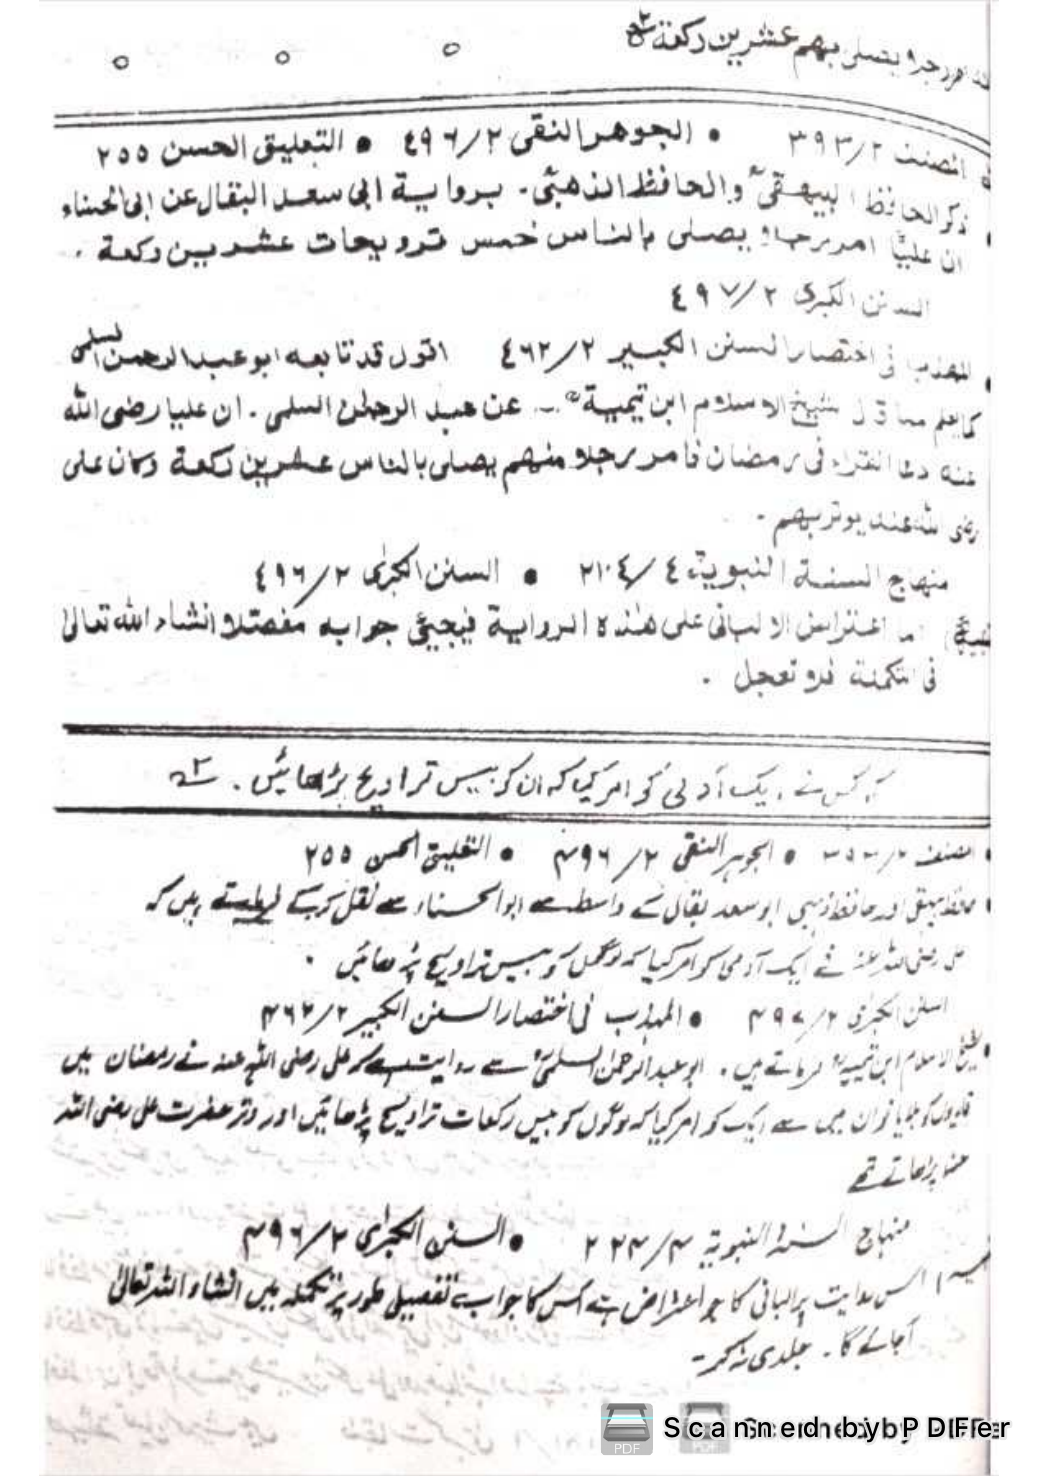 امر رجلا يصلى بهم عشرين ركعة ٢
المصنف ٢/٣٩٣ • الجوهر النقى ٢/٤٩٦ • التعليق الحسن ٢٥٥
ذكر الحافظ البيهقىؒ والحافظ الذهبىؒ. برواية ابى سعد البقال عن ابى الحسناء
ان عليًّا امر رجلا يصلى بالناس خمس ترويحات عشرين ركعة .
السنن الكبرى ٢/٤٩٧
المهذب فى اختصار السنن الكبير ٢/٤٦٢ اقول قد تابعه ابو عبد الرحمن السلمى
كما يعلم مما قال شيخ الاسلام ابن تيميةؒ .. عن عبد الرحمٰن السلمى . ان عليا رضى الله
عنه دعا القراء فى رمضان فامر رجلا منهم يصلى بالناس عشرين ركعة وكان على
رضى الله عنه يوتر بهم .
منهاج السنة النبوية ٤/ • السنن الكبرٰى ٢/٤٩٦
اما اعتراض الالبانى على هٰذه الرواية فيجيئ جوابه مفصلا انشاء الله تعالىٰ
فى التكملة فلا تعجل .
ایک آدمی کو امر کیا کہ ان کو بیس تراویح پڑھائیں . ٢
المصنف • الجوہر النقی ۲/۴۹۶ • التعلیق الحسن ۲۵۵
حافظ بیہقی اور حافظ ذہبی ابو سعد بقال کے واسطے سے ابو الحسناء سے نقل کرکے لکھتے ہیں کہ
علی رضی اللہ عنہ نے ایک آدمی کو امر کیا کہ لوگوں کو بیس تراویح پڑھائیں .
السنن الکبرٰی ۲/۴۹۷ • المہذب فی اختصار السنن الکبیر ۲/۴۶۲
شیخ الاسلام ابن تیمیہؒ فرماتے ہیں . ابو عبد الرحمٰن السلمیؒ سے روایت ہے کہ علی رضی اللہ عنہ نے رمضان میں
قاریوں کو بلایا تو ان میں سے ایک کو امر کیا کہ لوگوں کو بیس رکعات تراویح پڑھائیں اور وتر حضرت علی رضی اللہ
عنہ پڑھاتے تھے
منہاج السنۃ النبویۃ ۴/۲۲۴ • السنن الکبرٰی ۲/۴۹۶
اس روایت پر البانی کا جو اعتراض ہے اس کا جواب تفصیلی طور پر تکملہ میں انشاء اللہ تعالیٰ
آجائے گا . جلدی نہ کر -
Scanned by PDFer